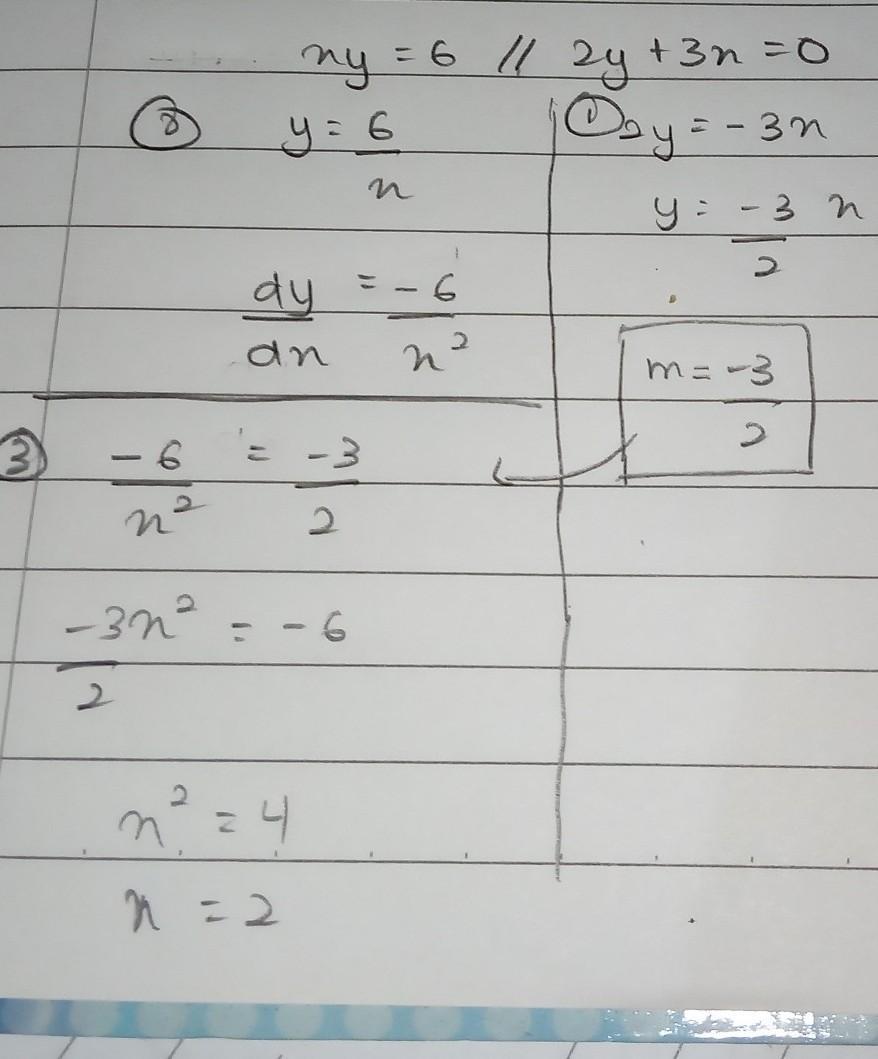 xy = 6 // 2y + 3x = 0
② y = 6/x
dy/dx = -6/x²
① 2y = -3x
y = -3/2 x
m = -3/2
③ -6/x² = -3/2
-3x²/2 = -6
x² = 4
x = 2